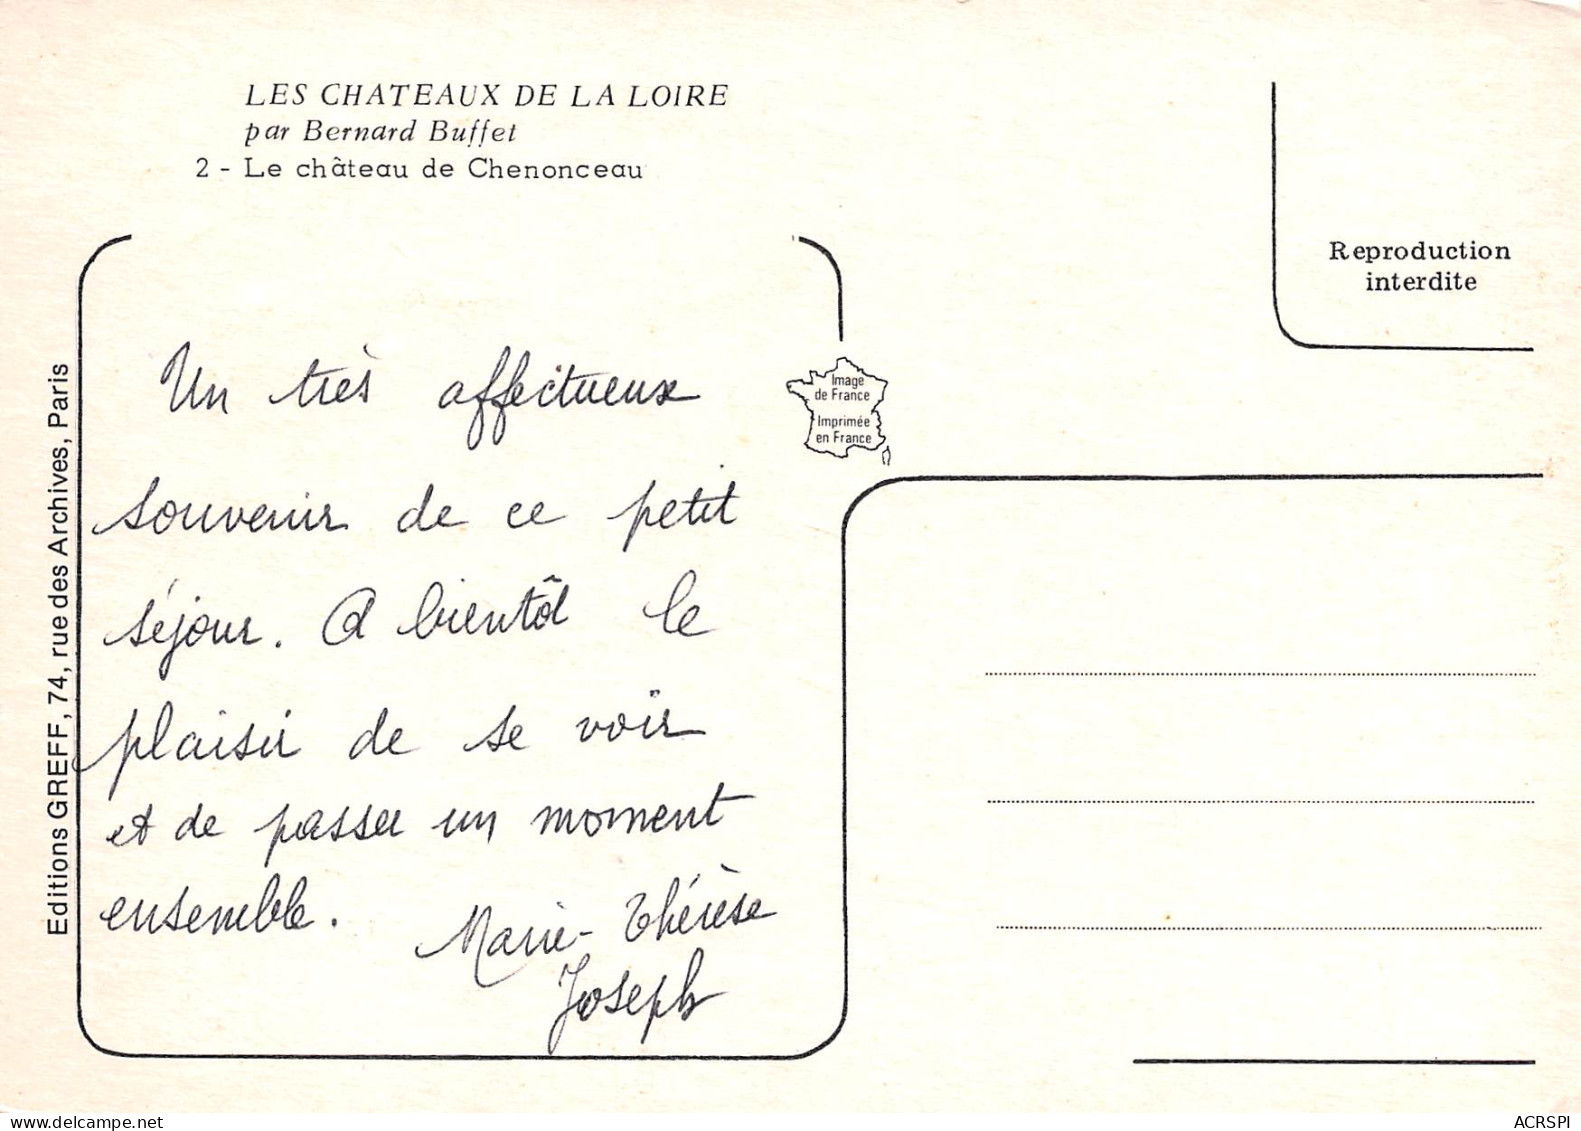 LES CHATEAUX DE LA LOIRE
par Bernard Buffet
2 - Le château de Chenonceau
Reproduction
interdite
Image
de France
Imprimée
en France
Editions GREFF, 74, rue des Archives, Paris
Un très affectueux
souvenir de ce petit
séjour. A bientôt le
plaisir de se voir
et de passer un moment
ensemble.
Marie-Thérèse
Joseph
ACRSPI